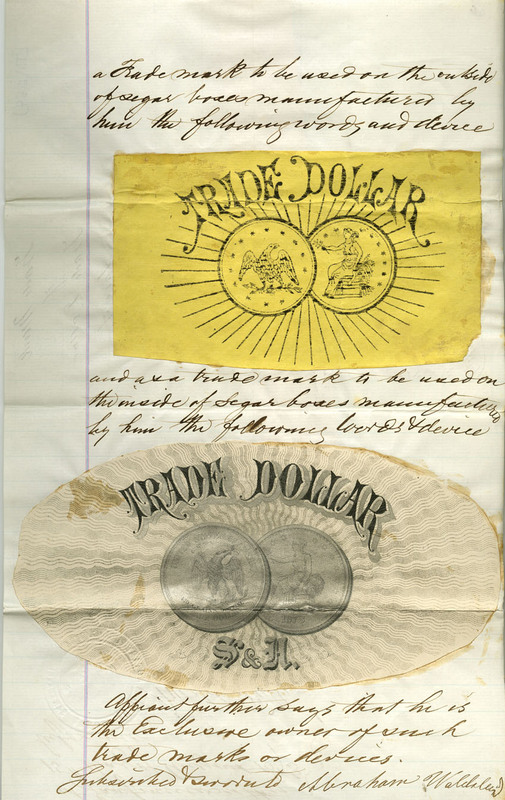 a Trade mark to be used on the outside
of segar boxes manufactured by
him the following words and device
TRADE DOLLAR
and as a trade mark to be used on
the inside of segar boxes manufactured
by him the following words & device
TRADE DOLLAR
S & A.
Affiant further says that he is
the Exclusive owner of such
trade marks or devices.
Subscribed & sworn to Abraham